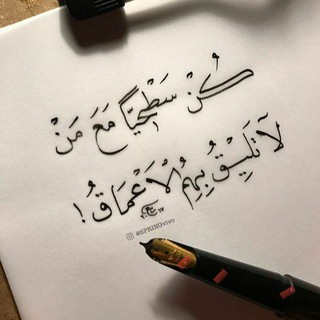 كُنْ سَطْحِيًّا مَعَ مَنْ
لَا تَلِيقُ بِهِمُ الْأَعْمَاقُ !
@SPRINGVIVO